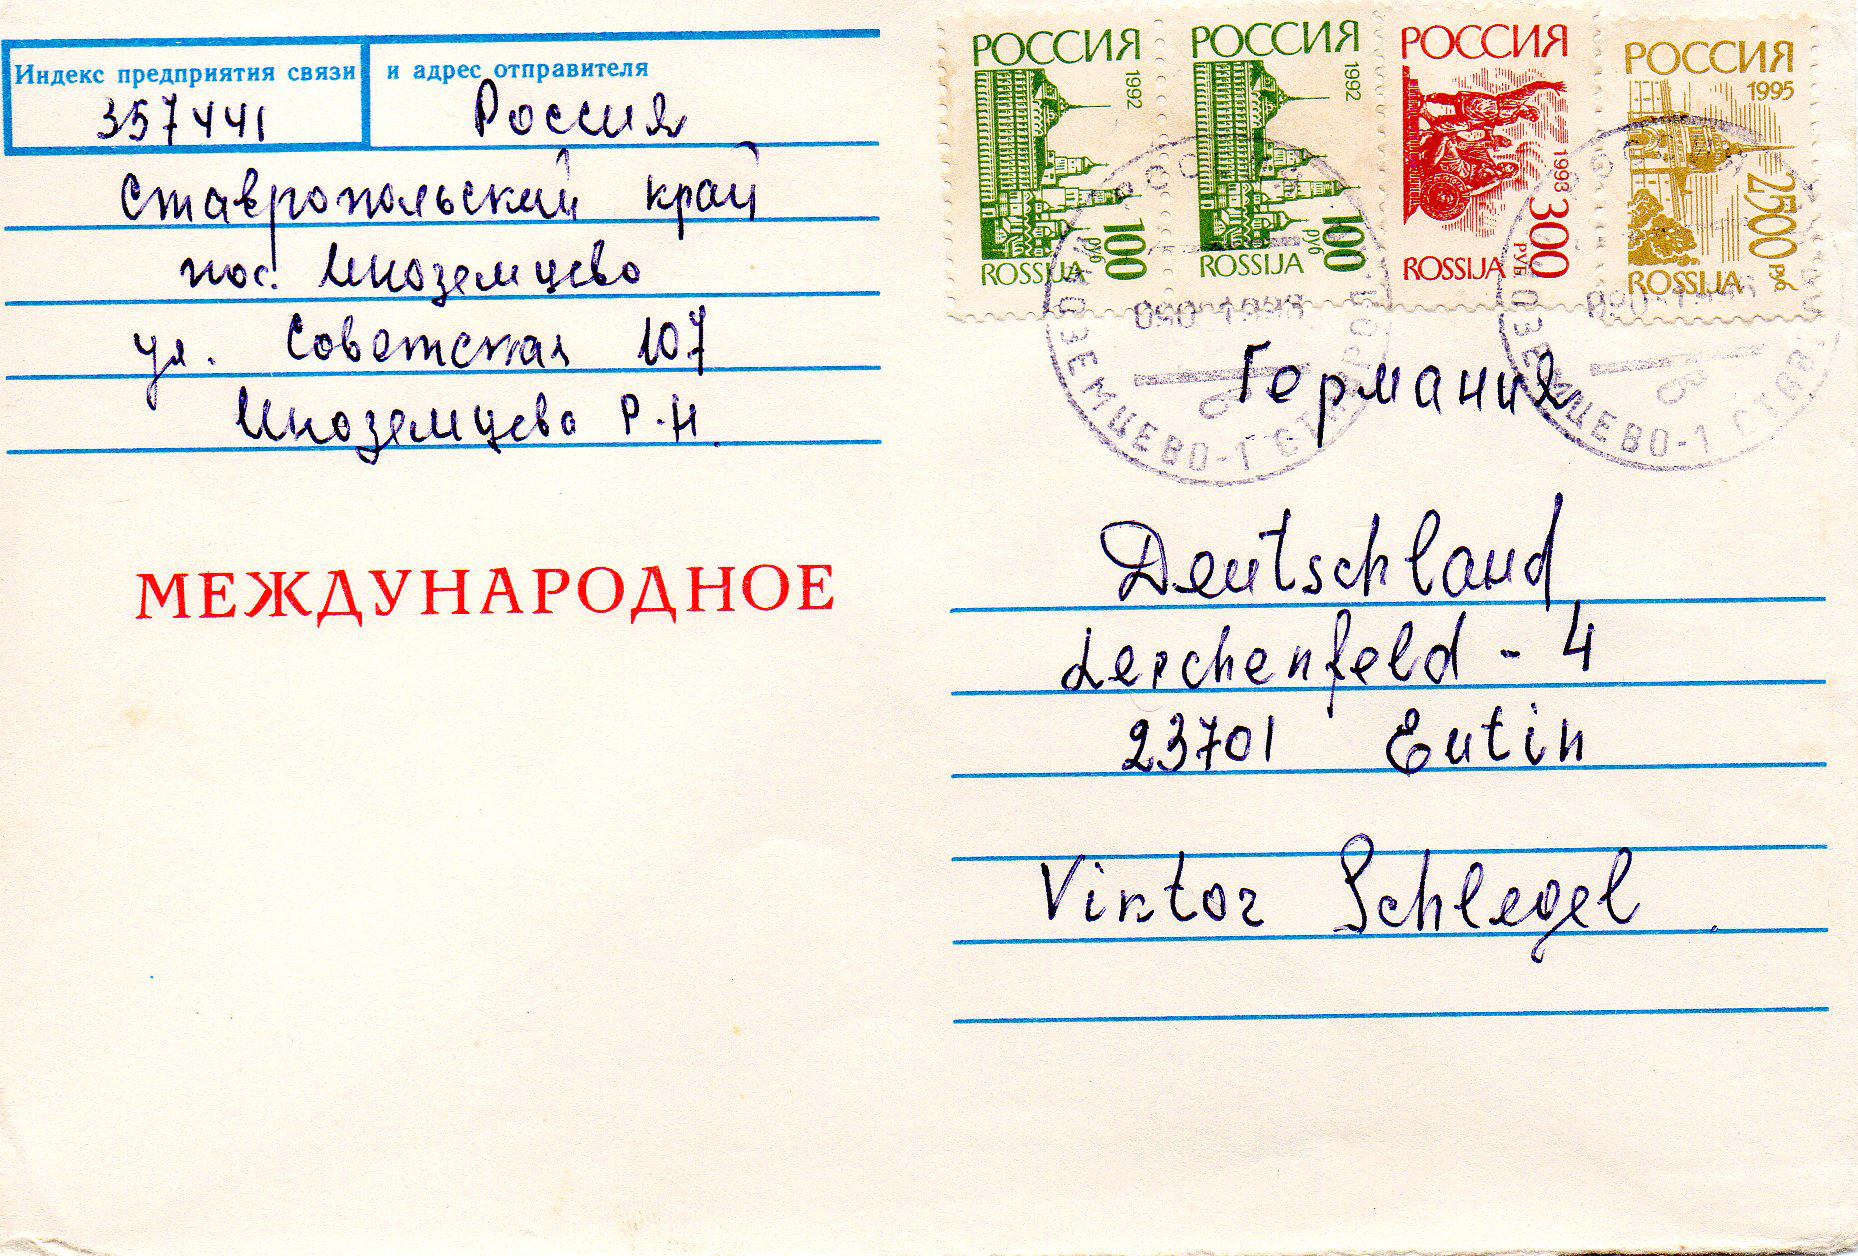 Индекс предприятия связи и адрес отправителя
357441 Россия
Ставропольский край
пос. Иноземцево
ул. Советская 107
Иноземцева Р.Н.
МЕЖДУНАРОДНОЕ
РОССИЯ
1992
100 руб
ROSSIJA
РОССИЯ
1992
100 руб
ROSSIJA
РОССИЯ
1993
300 РУБ
ROSSIJA
РОССИЯ
1995
2500 руб
ROSSIJA
ИНОЗЕМЦЕВО-1 СТАВРОП.
ИНОЗЕМЦЕВО-1 СТАВРОП.
Германия
Deutschland
Lerchenfeld - 4
23701 Eutin
Viktor Schlegel